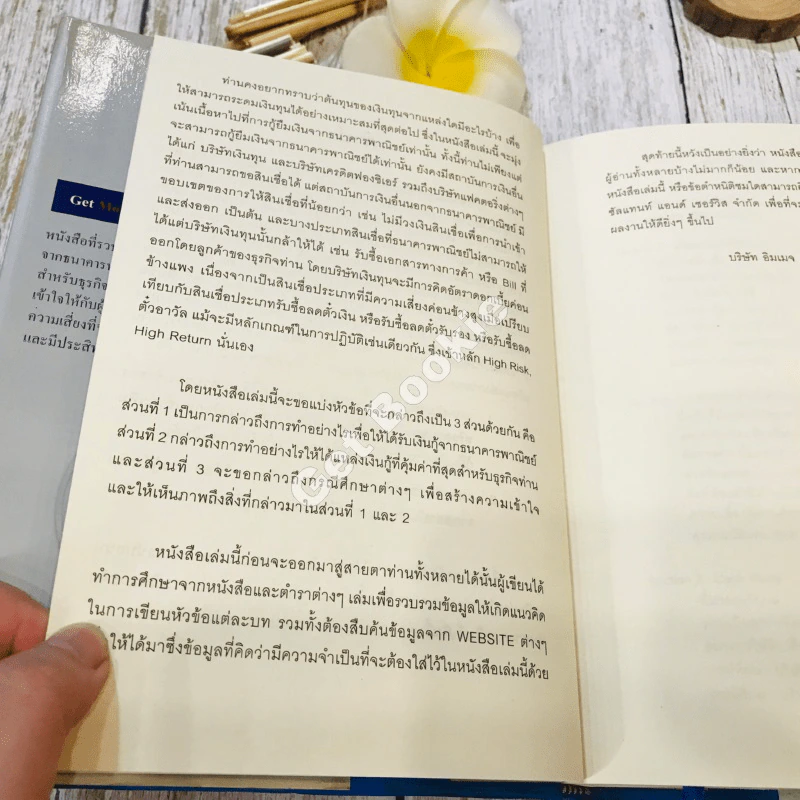 ท่านคงอยากทราบว่าต้นทุนของเงินทุนจากแหล่งใดมีอะไรบ้าง เพื่อ
ให้สามารถระดมเงินทุนได้อย่างเหมาะสมที่สุดต่อไป ซึ่งในหนังสือเล่มนี้ จะมุ่ง
เน้นเนื้อหาไปที่การกู้ยืมเงินจากธนาคารพาณิชย์เท่านั้น ทั้งนี้ท่านไม่เพียงแต่
จะสามารถกู้ยืมเงินจากธนาคารพาณิชย์ได้เท่านั้น ยังคงมีสถาบันการเงินอื่น
ได้แก่ บริษัทเงินทุน และบริษัทเครดิตฟองซิเอร์ รวมถึงบริษัทแฟคตอริ่งต่างๆ
ที่ท่านสามารถขอสินเชื่อได้ แต่สถาบันการเงินอื่นนอกจากธนาคารพาณิชย์ มี
ขอบเขตของการให้สินเชื่อที่น้อยกว่า เช่น ไม่มีวงเงินสินเชื่อเพื่อการนำเข้า
และส่งออก เป็นต้น และบางประเภทสินเชื่อที่ธนาคารพาณิชย์ไม่สามารถให้
ได้แต่บริษัทเงินทุนนั้นกล้าให้ได้ เช่น รับซื้อเอกสารทางการค้า หรือ Bill ที่
ออกโดยลูกค้าของธุรกิจท่าน โดยบริษัทเงินทุนจะมีการคิดอัตราดอกเบี้ยค่อน
ข้างแพง เนื่องจากเป็นสินเชื่อประเภทที่มีความเสี่ยงค่อนข้างสูงเมื่อเปรียบ
เทียบกับสินเชื่อประเภทรับซื้อลดตั๋วเงิน หรือรับซื้อลดตั๋วรับรอง หรือรับซื้อลด
ตั๋วอาวัล แม้จะมีหลักเกณฑ์ในการปฏิบัติเช่นเดียวกัน ซึ่งเข้าหลัก High Risk,
High Return นั่นเอง
โดยหนังสือเล่มนี้จะขอแบ่งหัวข้อที่จะกล่าวถึงเป็น 3 ส่วนด้วยกัน คือ
ส่วนที่ 1 เป็นการกล่าวถึงการทำอย่างไรเพื่อให้ได้รับเงินกู้จากธนาคารพาณิชย์
ส่วนที่ 2 กล่าวถึงการทำอย่างไรให้ได้แหล่งเงินกู้ที่คุ้มค่าที่สุดสำหรับธุรกิจท่าน
และส่วนที่ 3 จะขอกล่าวถึงกรณีศึกษาต่างๆ เพื่อสร้างความเข้าใจ
และให้เห็นภาพถึงสิ่งที่กล่าวมาในส่วนที่ 1 และ 2
หนังสือเล่มนี้ก่อนจะออกมาสู่สายตาท่านทั้งหลายได้นั้นผู้เขียนได้
ทำการศึกษาจากหนังสือและตำราต่างๆ เล่มเพื่อรวบรวมข้อมูลให้เกิดแนวคิด
ในการเขียนหัวข้อแต่ละบท รวมทั้งต้องสืบค้นข้อมูลจาก WEBSITE ต่างๆ
ให้ได้มาซึ่งข้อมูลที่คิดว่ามีความจำเป็นที่จะต้องใส่ไว้ในหนังสือเล่มนี้ด้วย
สุดท้ายนี้หวังเป็นอย่างยิ่งว่า หนังสือ
ผู้อ่านทั้งหลายบ้างไม่มากก็น้อย และหาก
หนังสือเล่มนี้ หรือข้อตำหนิติชมใดสามารถ
ซัลแทนท์ แอนด์ เซอร์วิส จำกัด เพื่อที่จะ
ผลงานให้ดียิ่งๆ ขึ้นไป
บริษัท อิมเมจ
Get
หนังสือที่รว
จากธนาคาร
สำหรับธุรกิจ
เข้าใจให้กับผู้
ความเสี่ยงที่
และมีประสิท
Get Bookie